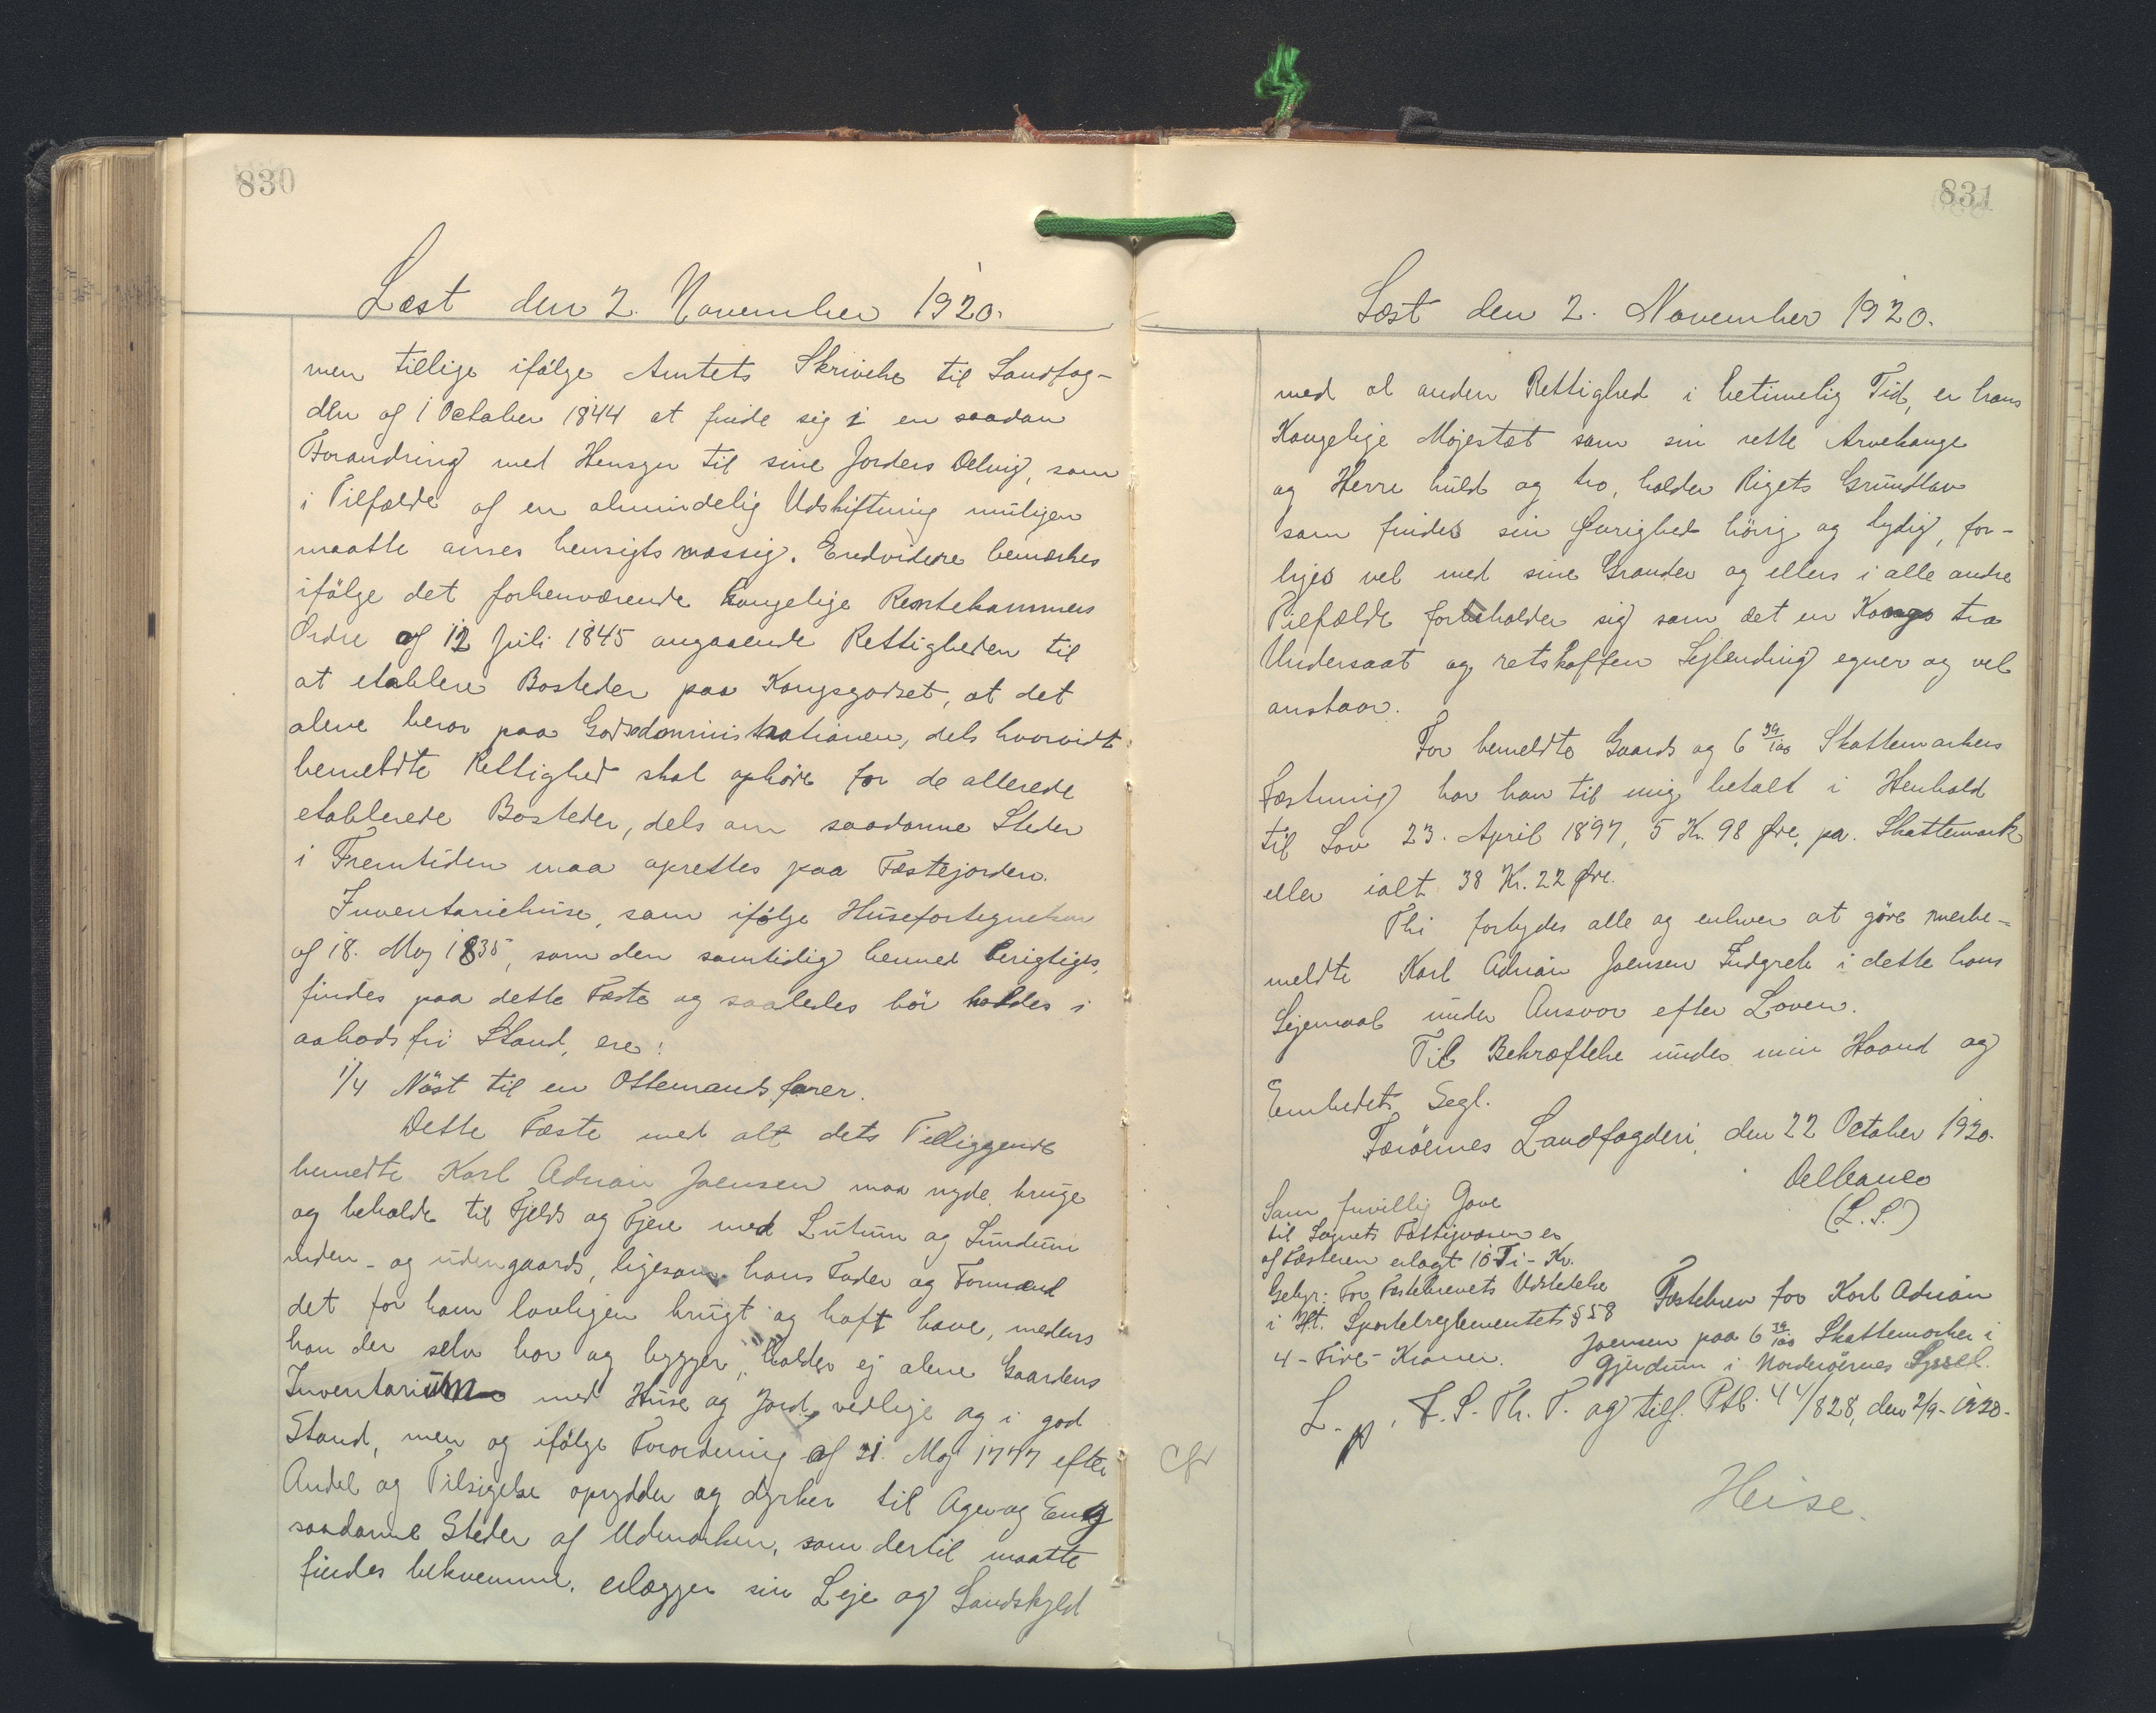 830
Læst den 2. November 1920.
men tillige ifølge Amtets Skrivelse til Landfog-
den af 1 October 1844 at finde sig i en saadan
Forandring med Hensyn til sine Jorders Deling, som
i Tilfælde af en almindelig Udskiftning muligen
maatte anses hensigtsmæssig. Endvidere bemærkes
ifølge det forhenværende kongelige Rentekammers
Ordre af 12 Juli 1845 angaaende Rettigheden til
at etablere Bosteder paa Kongsgodset, at det
alene beror paa Godsadministrationen, dels hvorvidt
bemeldte Rettighed skal ophøre for de allerede
etablerede Bosteder, dels om saadanne Steder
i Fremtiden maa oprettes paa Fæstejorden.
Inventariehuse, som ifølge Husefortegnelsen
af 18. Maj 1835, som den samtidig hermed berigtiges,
findes paa dette Fæste og saaledes bör holdes i
aabodsfri Stand, ere:
1/4 Nöst til en Ottemandsfarer.
Dette Fæste med alt dets Tilliggende
bemeldte Karl Adrian Joensen maa nyde, bruge
og beholde til Fjelds og Fjære med Lutum og Lundum
inden- og udengaards, ligesom hans Fader og Formænd
det for ham lovligen brugt og haft have, medens
han der selv bor og bygger, holder ej alene Gaardens
Inventarium med Huse og Jord, vedlige og i god
Stand, men og ifølge Forordning af 21. Maj 1777 efter
Andel og Tilsigelse oprydder og dyrker til Ager og Eng
saadanne Steder af Udmarken, som dertil maatte
findes bekvemme, erlægger sin Leje og Landskyld
831
Læst den 2. November 1920.
med al anden Rettighed i betimelig Tid, er hans
Kongelige Majestæt som sin rette Arvekonge
og Herre huld og tro, holder Rigets Grundlov
som findes sin Øvrighed hörig og lydig, for-
liges vel med sine Grander og ellers i alle andre
Tilfælde forholder sig som det en Kongs tro
Undersaat og retskaffen Lejlending egner og vel
anstaar.
For bemeldte Gaards og 6 39/100 Skattemarkers
Fæstning har han til mig betalt i Henhold
til Lov 23. April 1897, 5 Kr. 98 Øre, pr. Skattemark
eller ialt 38 Kr. 22 Øre.
Thi forbydes alle og enhver at göre merbe-
meldte Karl Adrian Joensen Indgreb i dette hans
Lejemaal under Ansvar efter Loven.
Til Bekræftelse under min Haand og
Embedets Segl.
Færöernes Landfogderi, den 22 October 1920.
(L.S.)
Som frivillig Gave
til Sognets Fattigvæsen er
af Fæsteren erlagt 10 Ti - Kr.
Gebyr: For Fæstebrevets Udstedelse
i Ht. Sportelreglementets § 58
4 - Fire - Kroner.
Fæstebrev for Karl Adrian
Joensen paa 6 39/100 Skattemarker i
Gjendum i Norderöernes Syssel.
L. p. F. S. Th. T. og tilf. Ptb. 44/828, den 2/9-1920-
cfr
Heise.